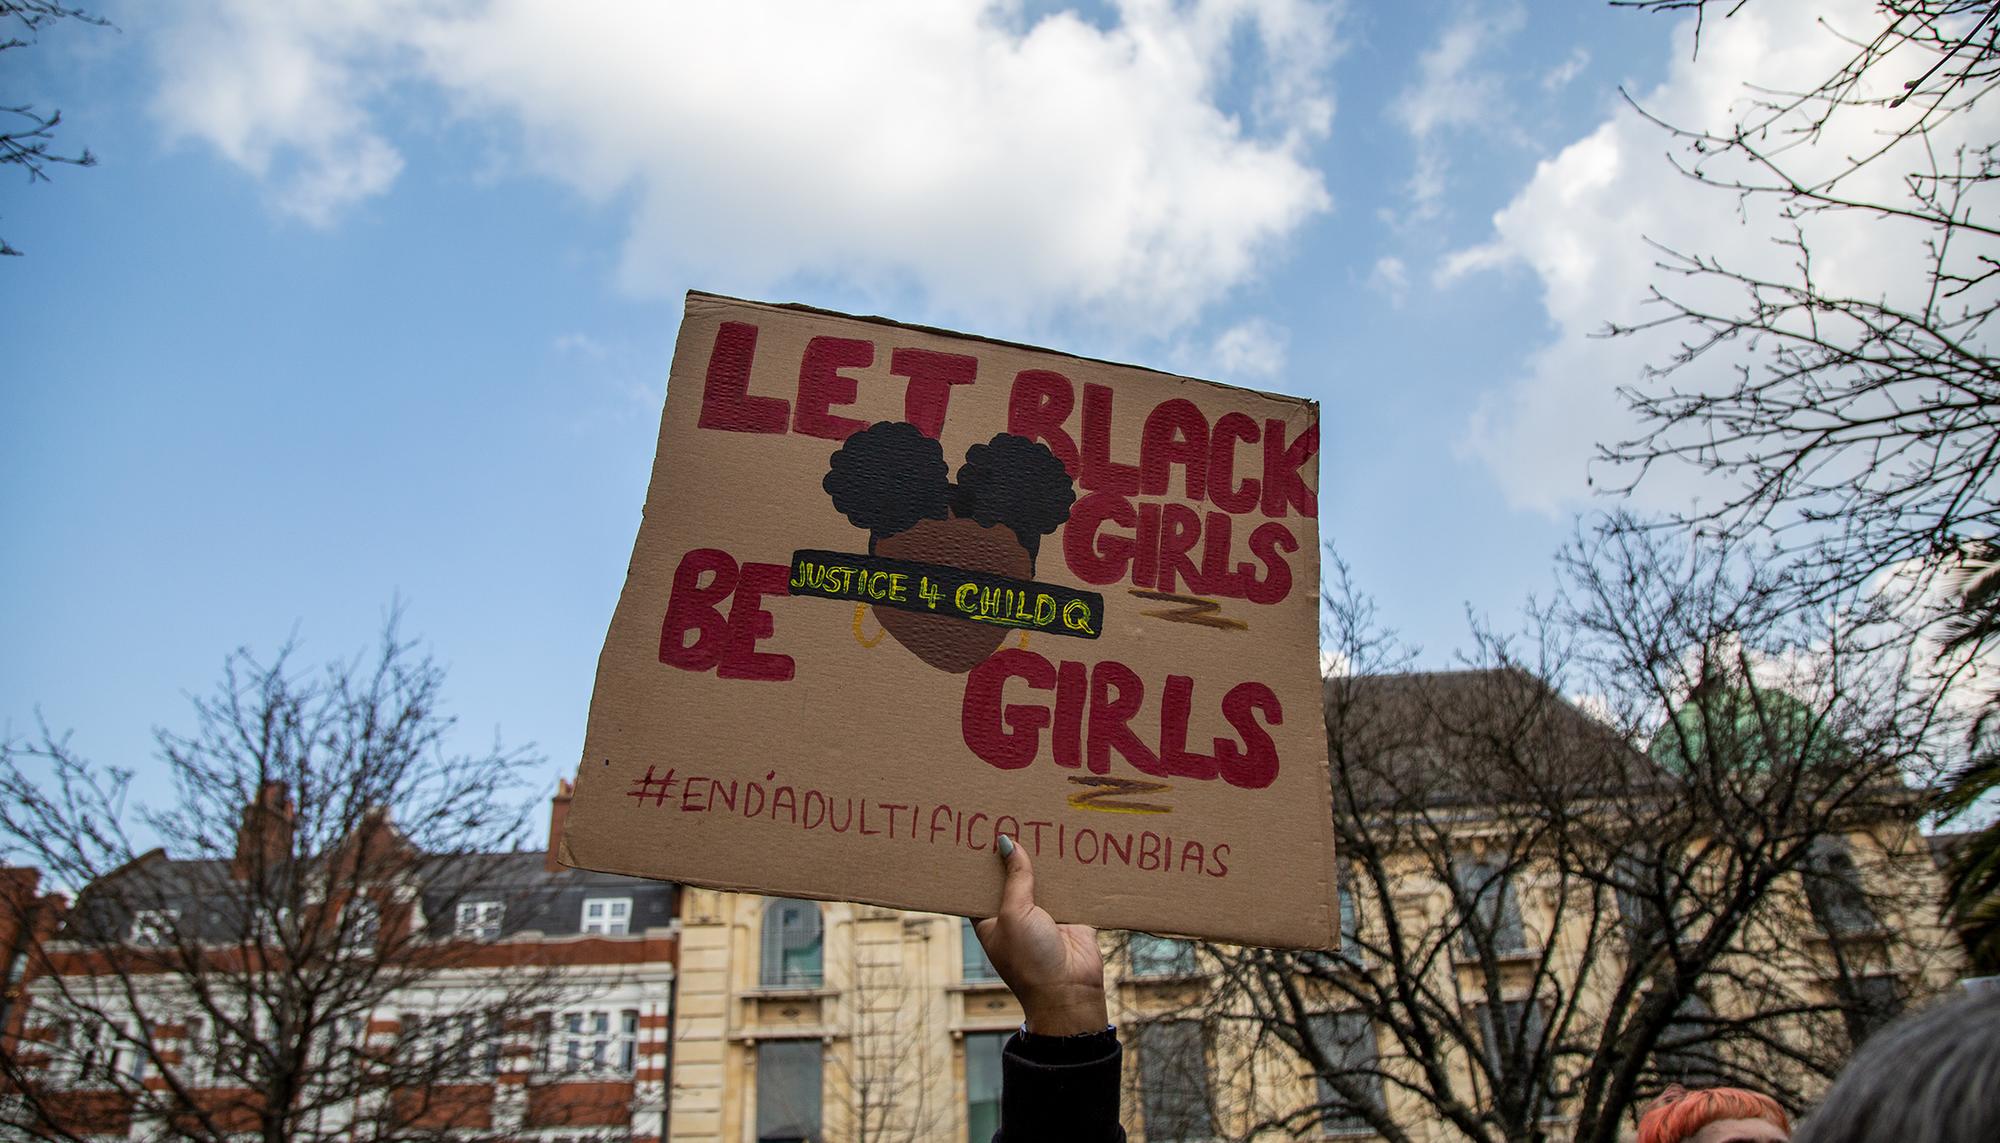 LET BLACK
GIRLS
JUSTICE 4 CHILD Q
BE
GIRLS
#END'ADULTIFICATIONBIAS